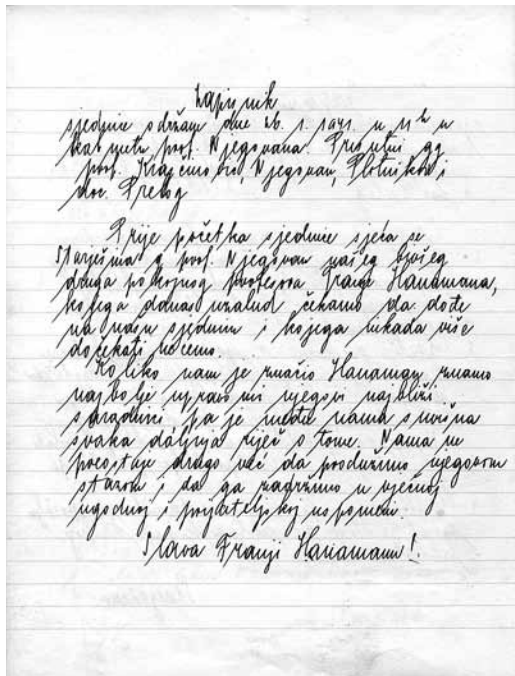 Zapisnik
sjednice održane dne 26. 1. 1941. u 11 h u
kabinetu prof. Njegovana. Prisutni gg
prof. Krajčinović, Njegovan, Plotnikov i
doc. Prelog
Prije početka sjednice sjeća se
Starješina g. prof. Njegovan našeg bivšeg
druga pokojnog profesora Franje Hanamana,
kojega danas uzalud čekamo da dođe
na našu sjednicu i kojega nikada više
dočekati nećemo.
Koliko nam je značio Hanaman znamo
najbolje upravo mi njegovi najbliži
saradnici pa je među nama suvišna
svaka daljnja riječ o tome. Nama ne
preostaje drugo već da produžimo njegovom
stazom i da ga zadržimo u vječnoj
ugodnoj i prijateljskoj uspomeni.
Slava Franji Hanamanu!